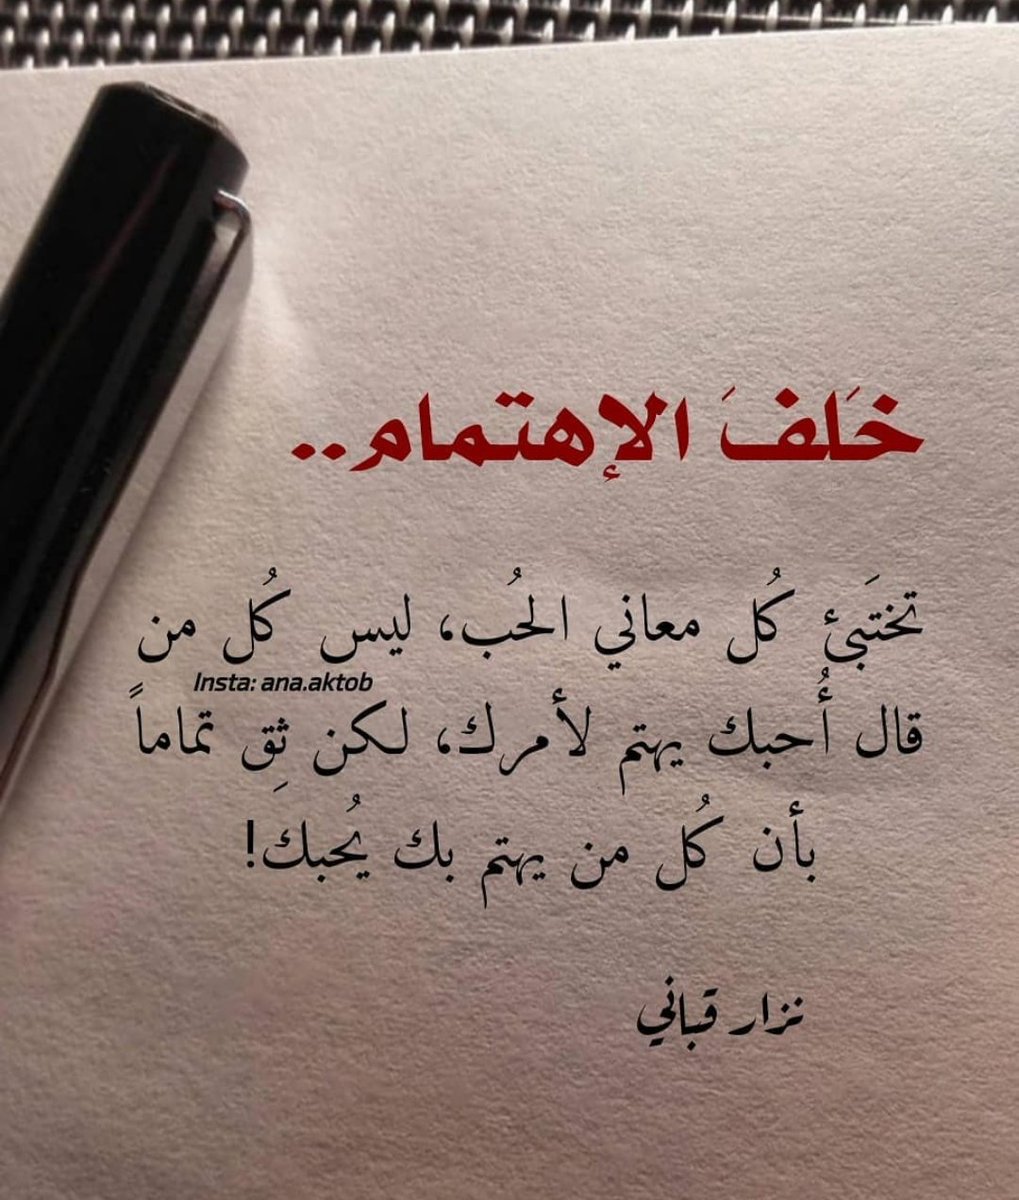 خَلفَ الإهتمام..
تختَبئ كُل معاني الحُب، ليس كُل من
Insta: ana.aktob
قال أُحبك يهتم لأمرك، لكن ثِق تماماً
بأن كُل من يهتم بك يُحبك!
نزار قباني